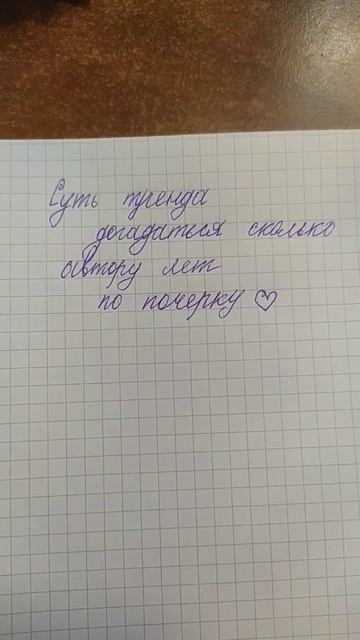 Суть тренда
догадаться сколько
автору лет
по почерку ♡